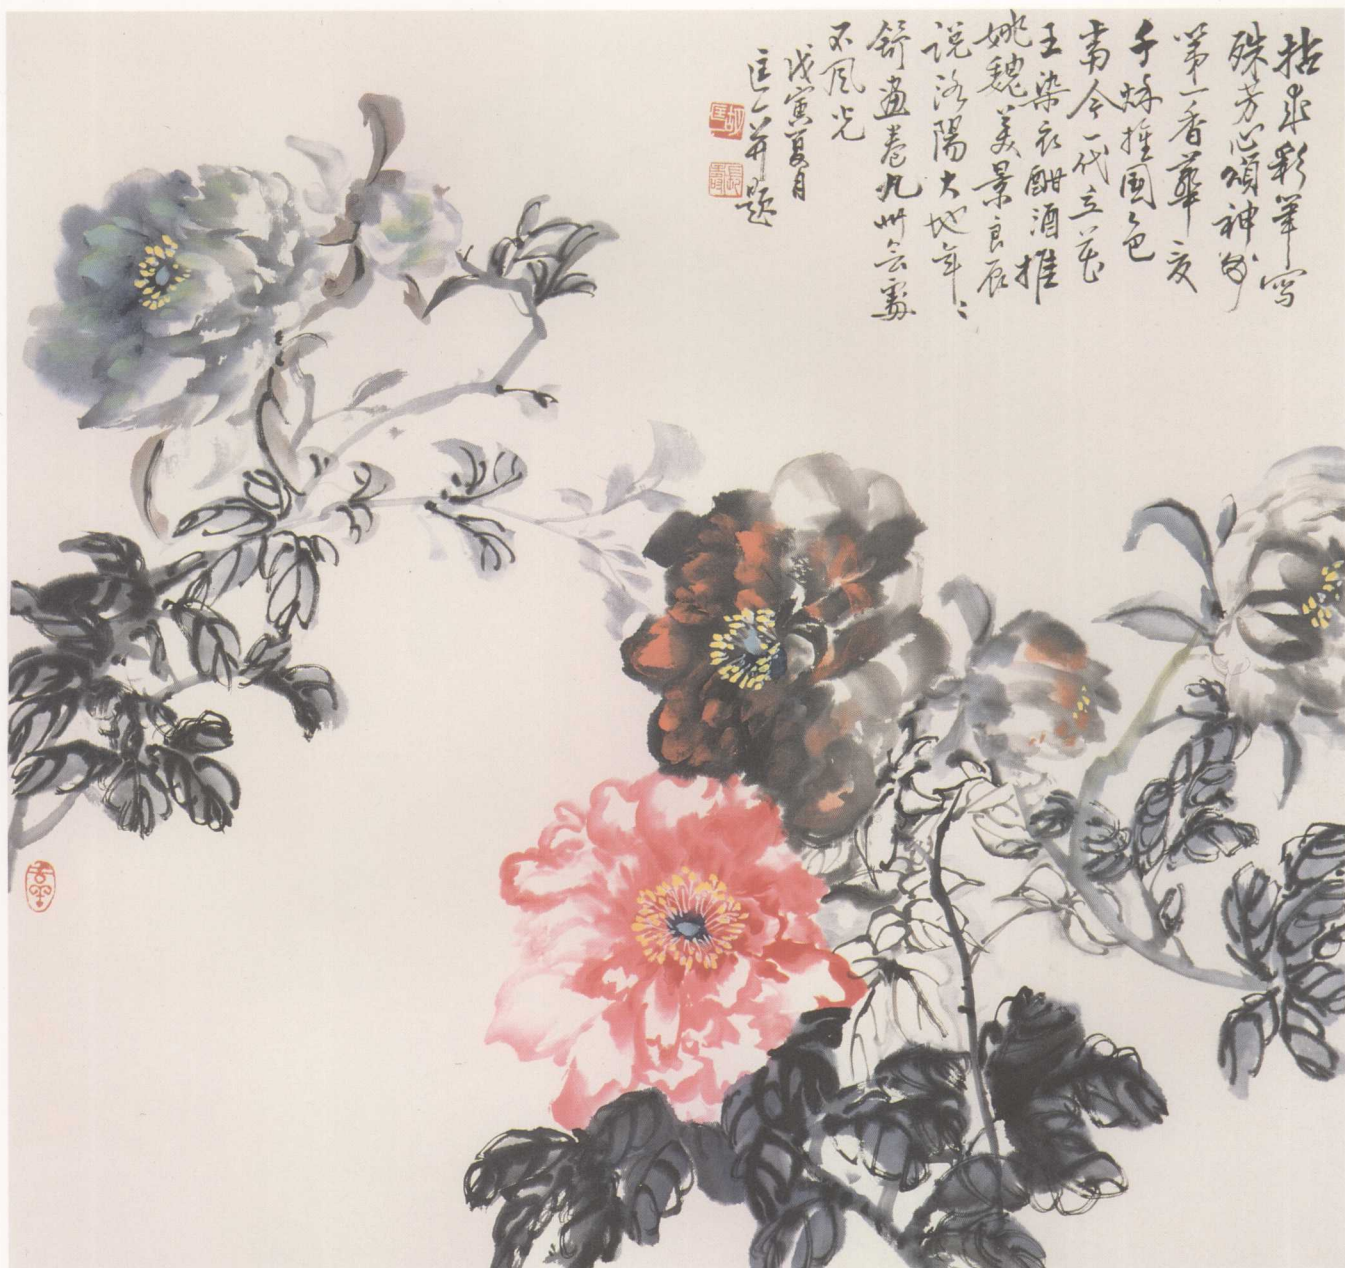 拈来彩笔写
殊芳心颂神州
第一香华夏
千娇推国色
当今一代立花
王染衣酣酒推
姚魏美景良辰
说洛阳大地年〻
舒画卷九州无处
不风光
戊寅夏月
匡之并题